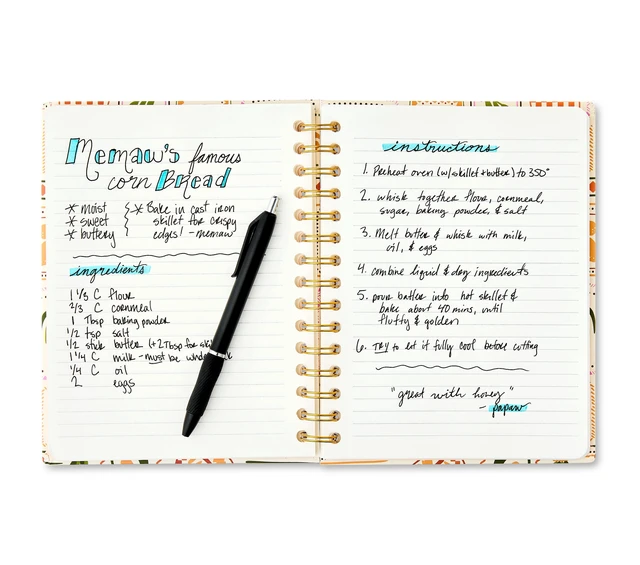 Memaw's famous
corn Bread
* moist
* sweet
* buttery
* Bake in cast iron
skillet for crispy
edges! - memaw
ingredients
1 1/3 C flour
2/3 C cornmeal
1 Tbsp baking powder
1/2 tsp salt
1/2 stick butter (+2 Tbsp for
1 1/4 C milk - must be
1/4 C oil
2 eggs
instructions
1. Preheat oven (w/skillet + butter) to 350°
2. whisk together flour, cornmeal,
sugar, baking powder, & salt
3. Melt butter & whisk with milk,
oil, & eggs
4. combine liquid & dry ingredients
5. pour batter into hot skillet &
bake about 40 mins, until
fluffy & golden
6. TRY to let it fully cool before cutting
"great with honey"
- papaw